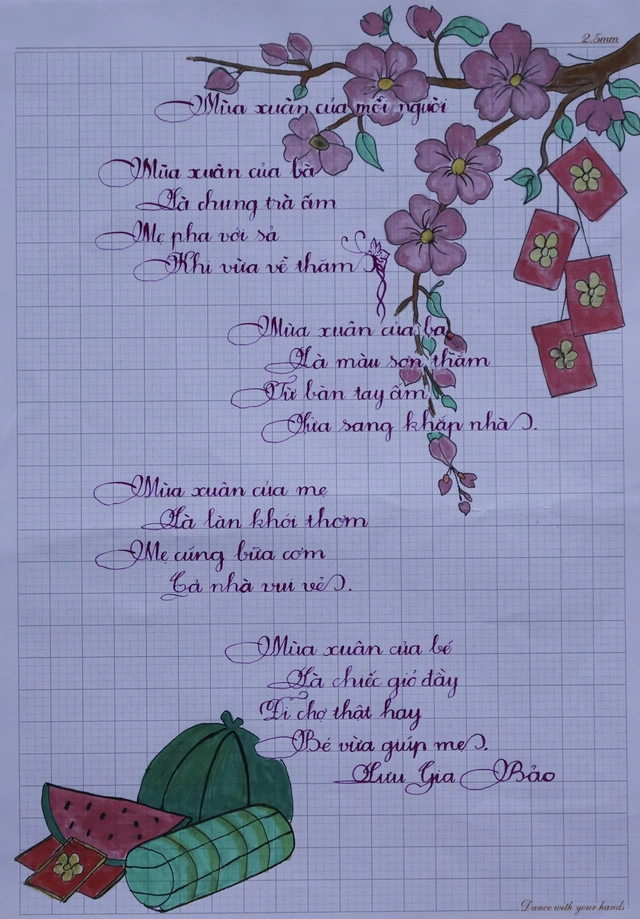 2.5mm
Mùa xuân của mỗi người
Mùa xuân của bà
Là chung trà ấm
Mẹ pha với sả
Khi vừa về thăm
Mùa xuân của ba
Là màu sơn thắm
Từ bàn tay ấm
Sửa sang khắp nhà.
Mùa xuân của mẹ
Là làn khói thơm
Mẹ cúng bữa cơm
Cả nhà vui vẻ.
Mùa xuân của bé
Là chiếc giỏ đầy
Đi chợ thật hay
Bé vừa giúp mẹ.
Lưu Gia Bảo
Dance with your hands